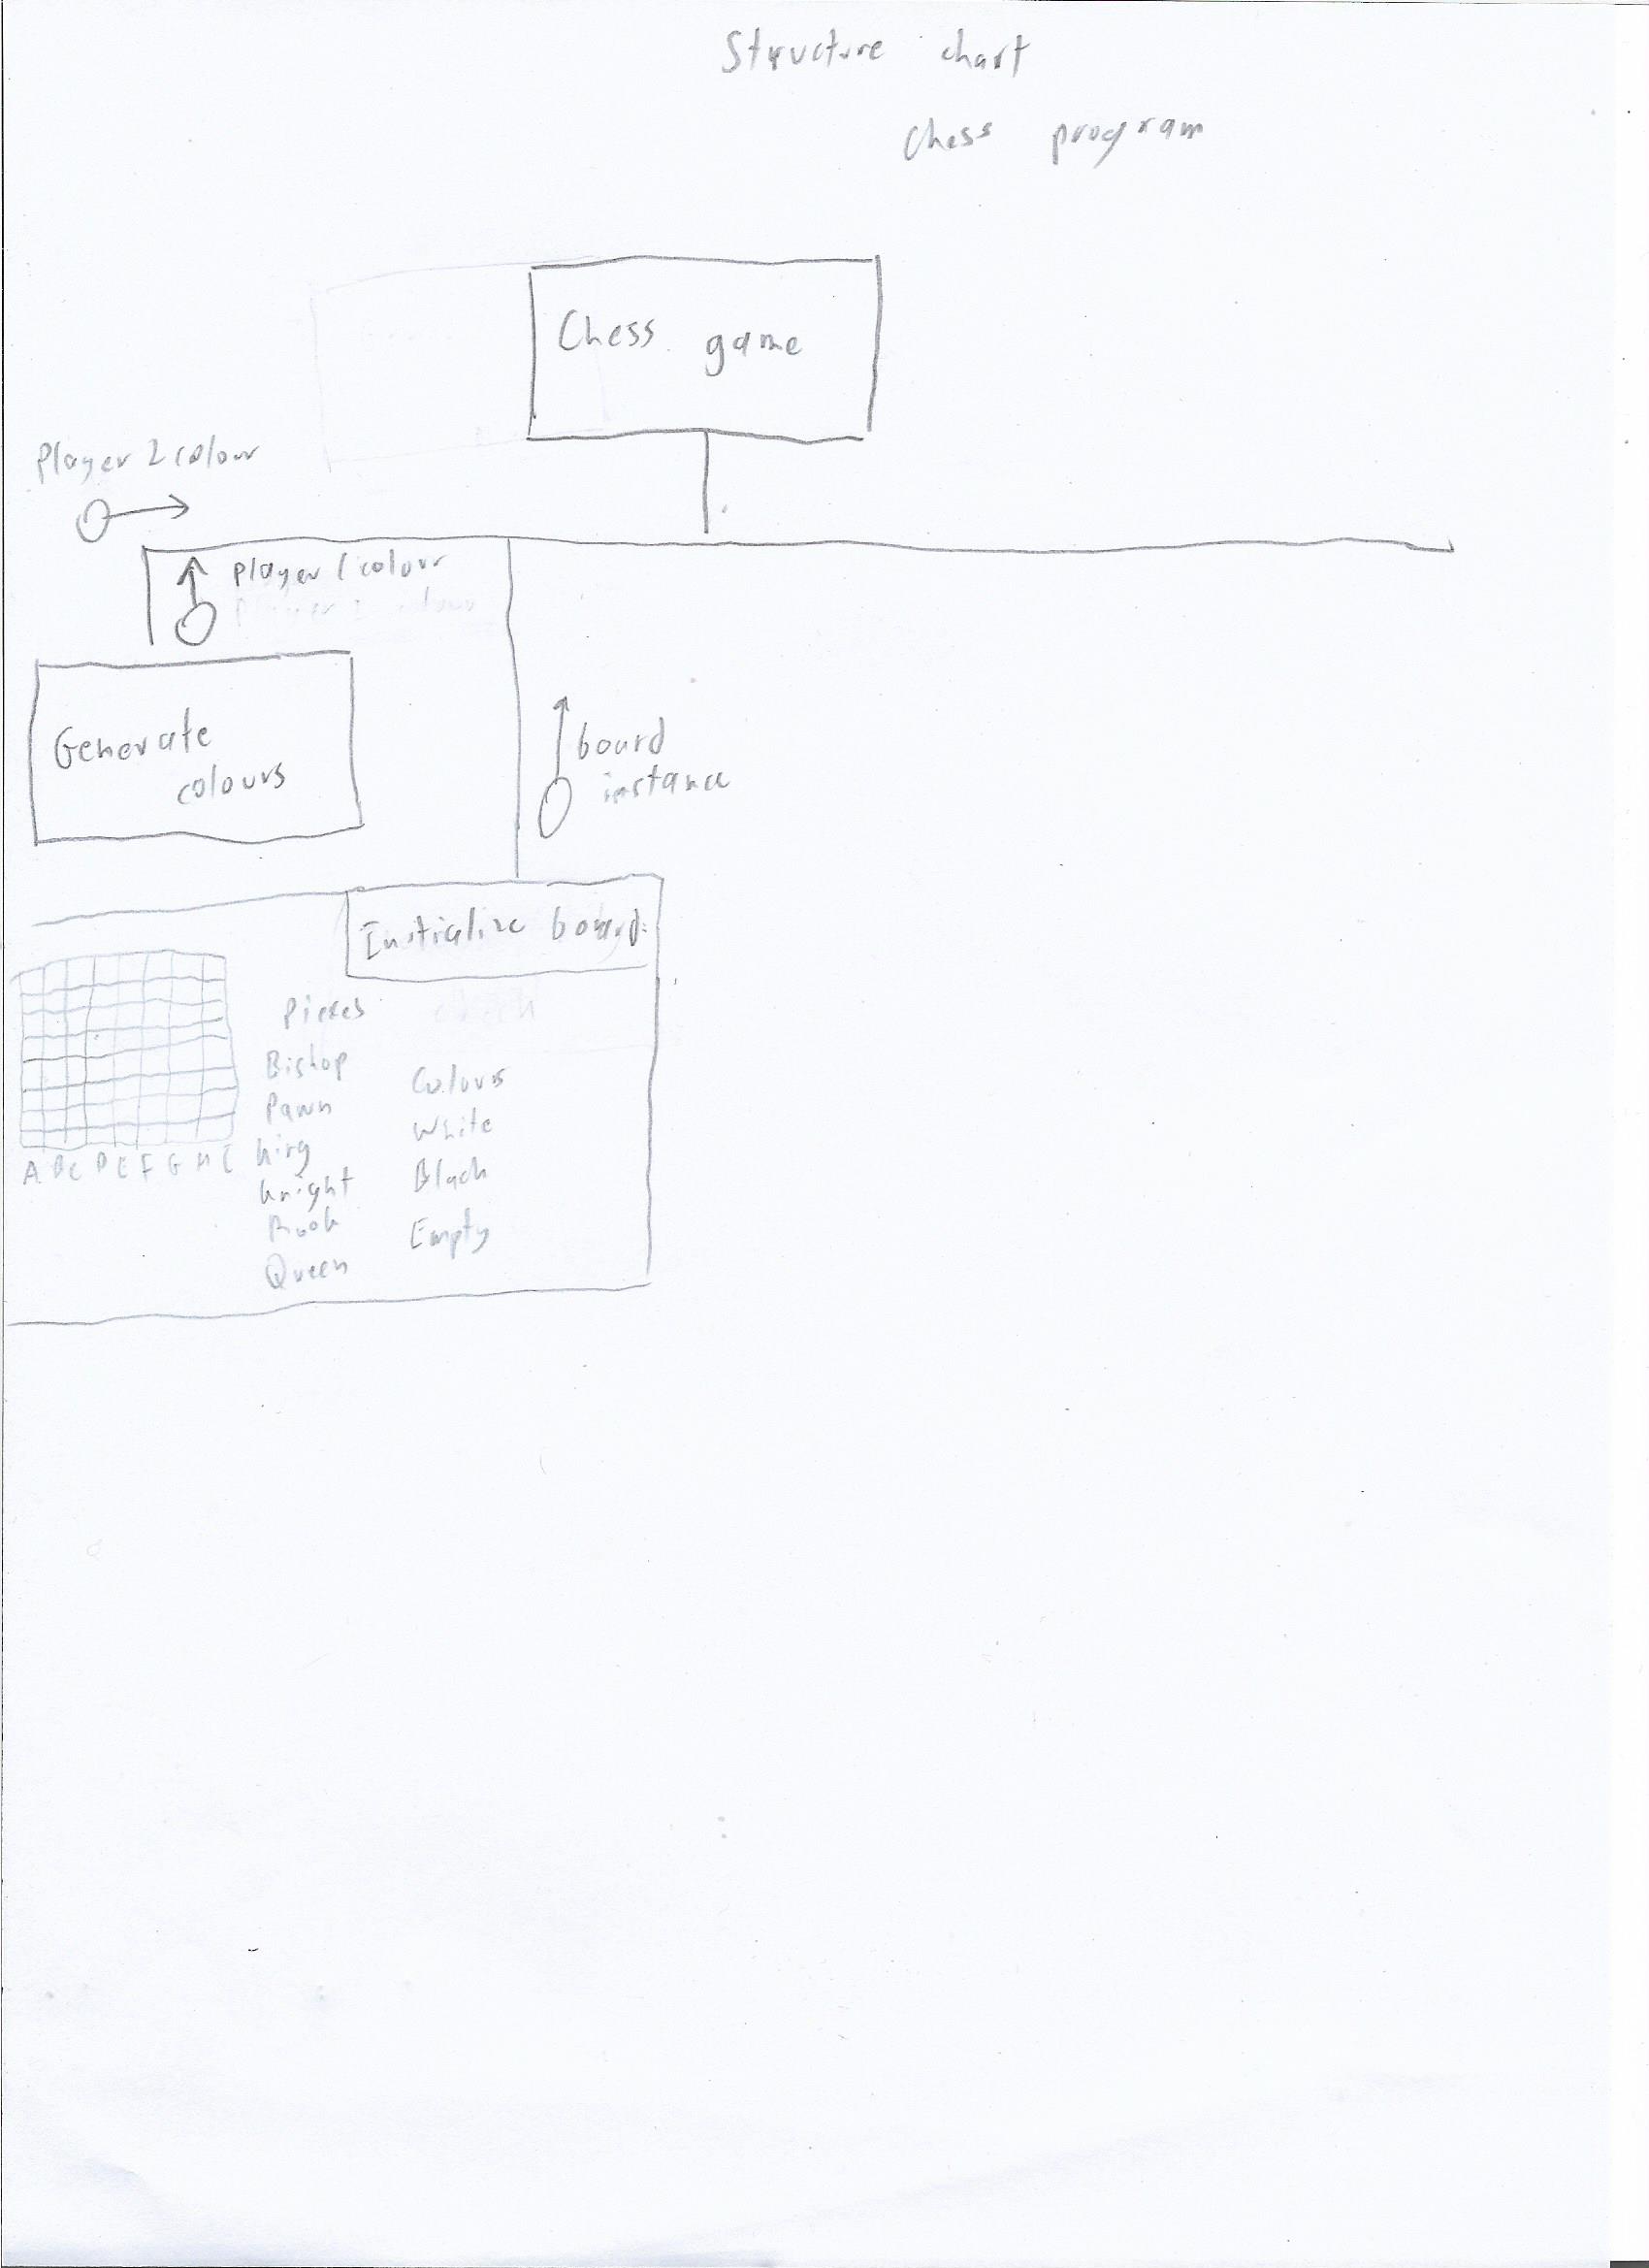 Structure chart
Chess program
Chess game
Player 2 colour
Player 1 colour
Generate
colours
board
instance
Initialize board
Pieces
Bishop
Pawn
King
Knight
Rook
Queen
Colours
White
Black
Empty
A B C D E F G H